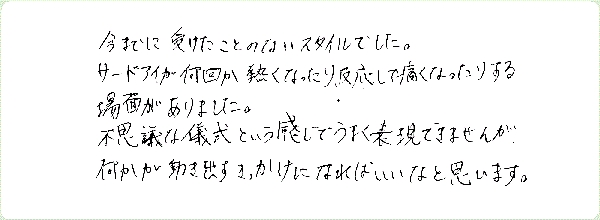 今までに受けたことのないスタイルでした。
サードアイが何回か熱くなったり、反応して痛くなったりする
場面がありました。
不思議な儀式という感じでうまく表現できませんが
何かが動き出すきっかけになればいいなと思います。